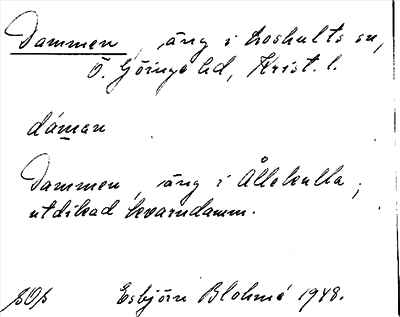 Dammen, äng i Loshults sn,
Ö. Göinge hd, Krist. l.
dáman
Dammen, äng i Ållekulla;
utdikad kvarndamm.
Esbjörn Blohmé 1948.